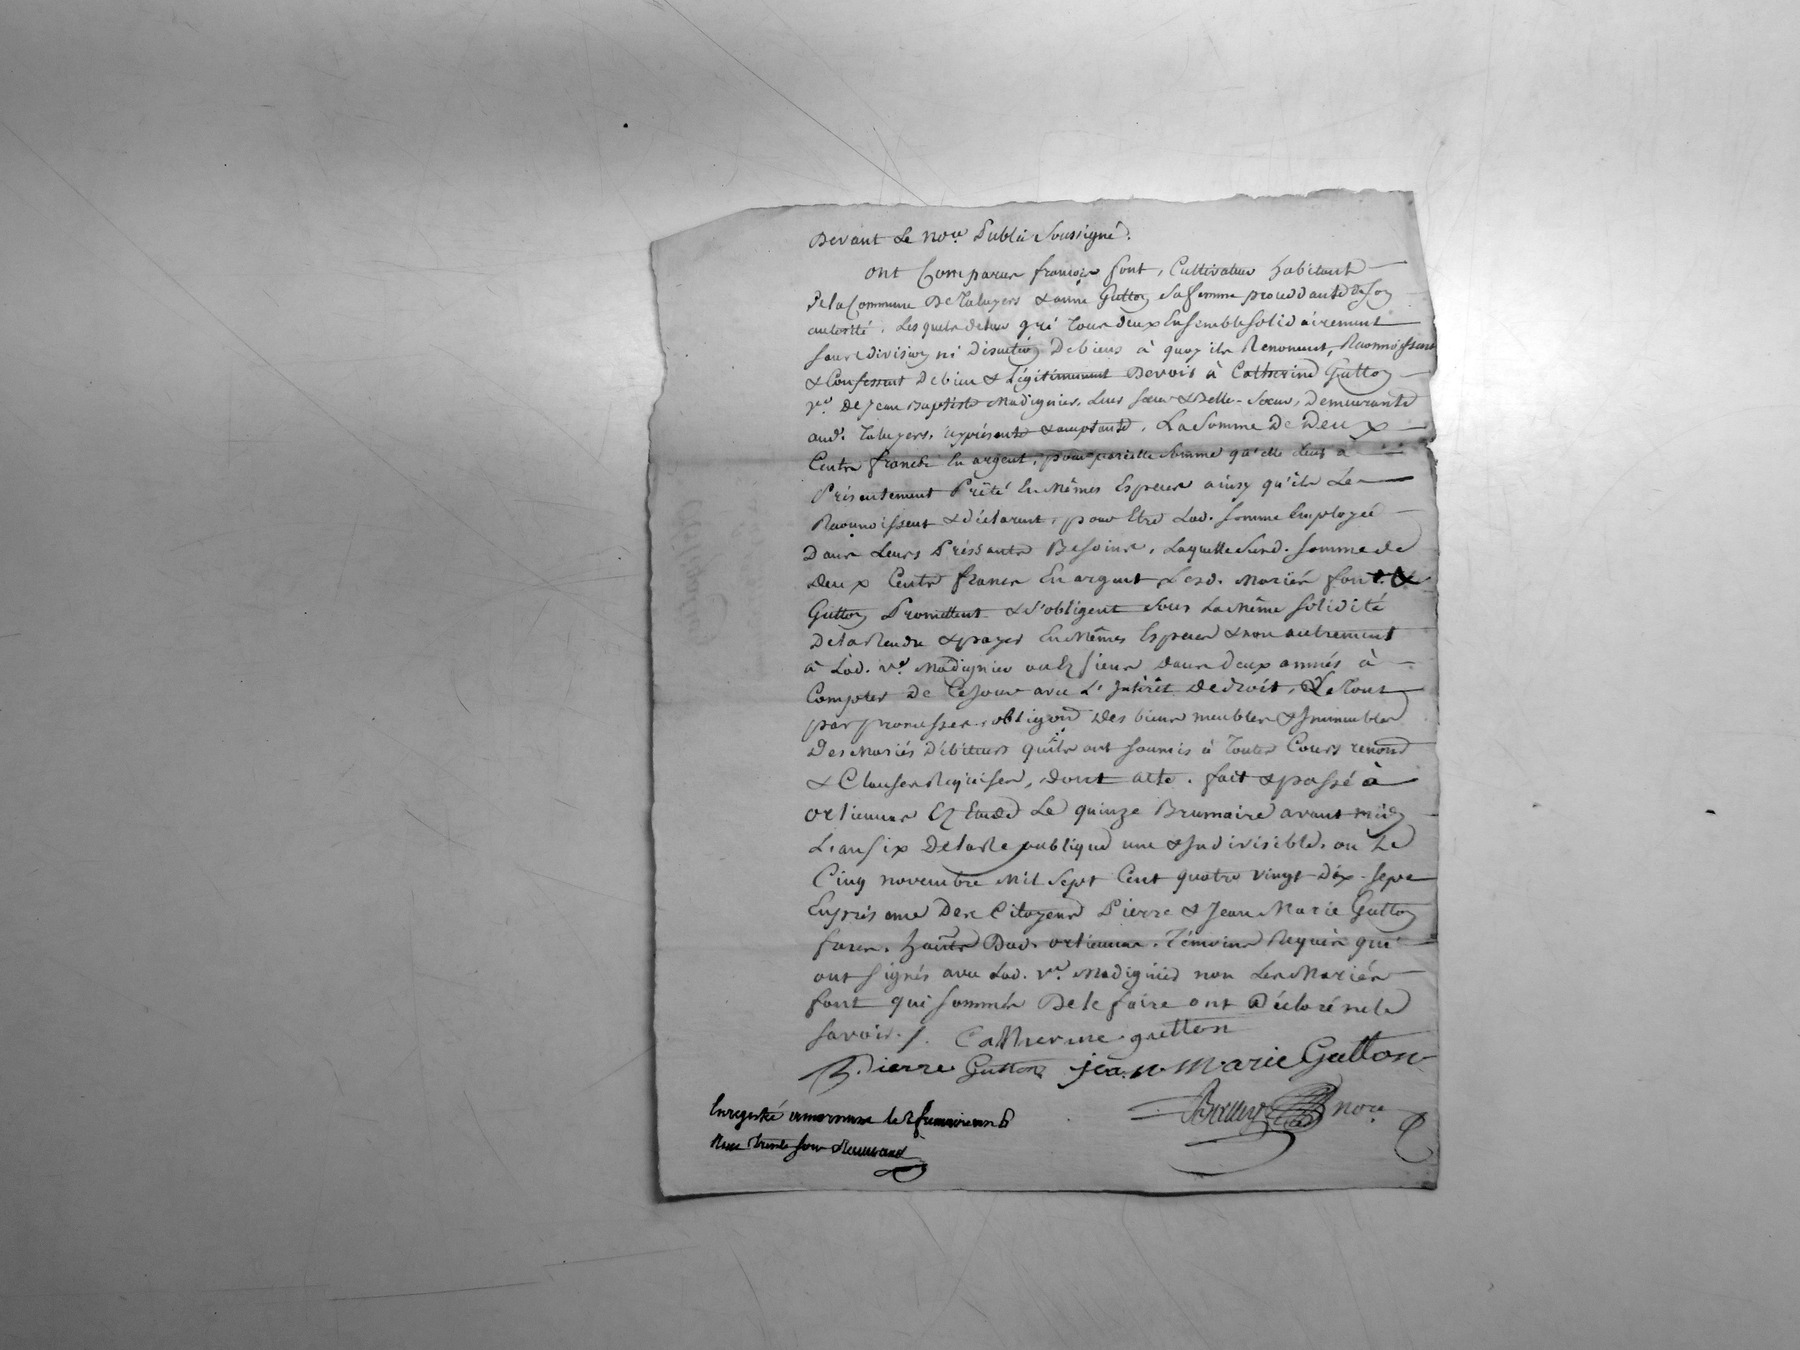 Devant Le no.re Public Soussigné.
ont Comparus françois font, Cultivateur habitant
De la Commune De Taluyers & anne Gutton sa femme procedante De son
autorité, Lesquels de leur gré Tous deux Ensemble solidairement
sans division ni Discution De biens à quoy ils Renoncent, Reconnoissent
& Confessent De bien & légitimement Devoir à Catherine Gutton
v.e De Jean Baptiste Madignier, Leur sœur & Belle-sœur, Demeurante
aud. Taluyers, icy présente & acceptante, La Somme De Deux
Cents francs En argent, pour pareille somme qu'elle leur a
Présentement Prêté En Mêmes Especes ainsy qu'ils Le
Reconnoissent & déclarent, pour Etre Lad. somme Employée
Dans Leurs Préssants Besoins, Laquelle susd. somme de
Deux Cents francs En argent, Lesd. Mariés font &
Gutton Promettent & s'obligent sous La Même solidité
De la Rendre & payer En Mêmes Especes & non autrement
à Lad. v.e Madignier ou Es siens dans deux années à
Compter De Ce jour avec L'Intérêt De droit, Le Tout
par promesses, obligeon Des biens meubles & Immeubles
Des Mariés Débiteurs qu'ils ont soumis à Toutes Cours renon
& Clauses Requises, dont acte. fait & passé à
orlienas Es Etude Le quinze Brumaire avant midy
L'an six De la Republique une & Indivisible, ou Le
Cinq novembre Mil Sept Cent quatre vingt Dix-sept
En présence Des Citoyens Pierre & Jean Marie Gutton
freres, hants Dud. orlienas, Témoins Requis qui
ont signés avec Lad. v.e Madignier non Les Mariés
font qui sommés De le faire ont Déclaré ne le
savoir./. Catherine gutton
Pierre Gutton jean marie Gutton
no.re
Enregistré a mornant le 2 frimaire an 6
Reçu Trente sous